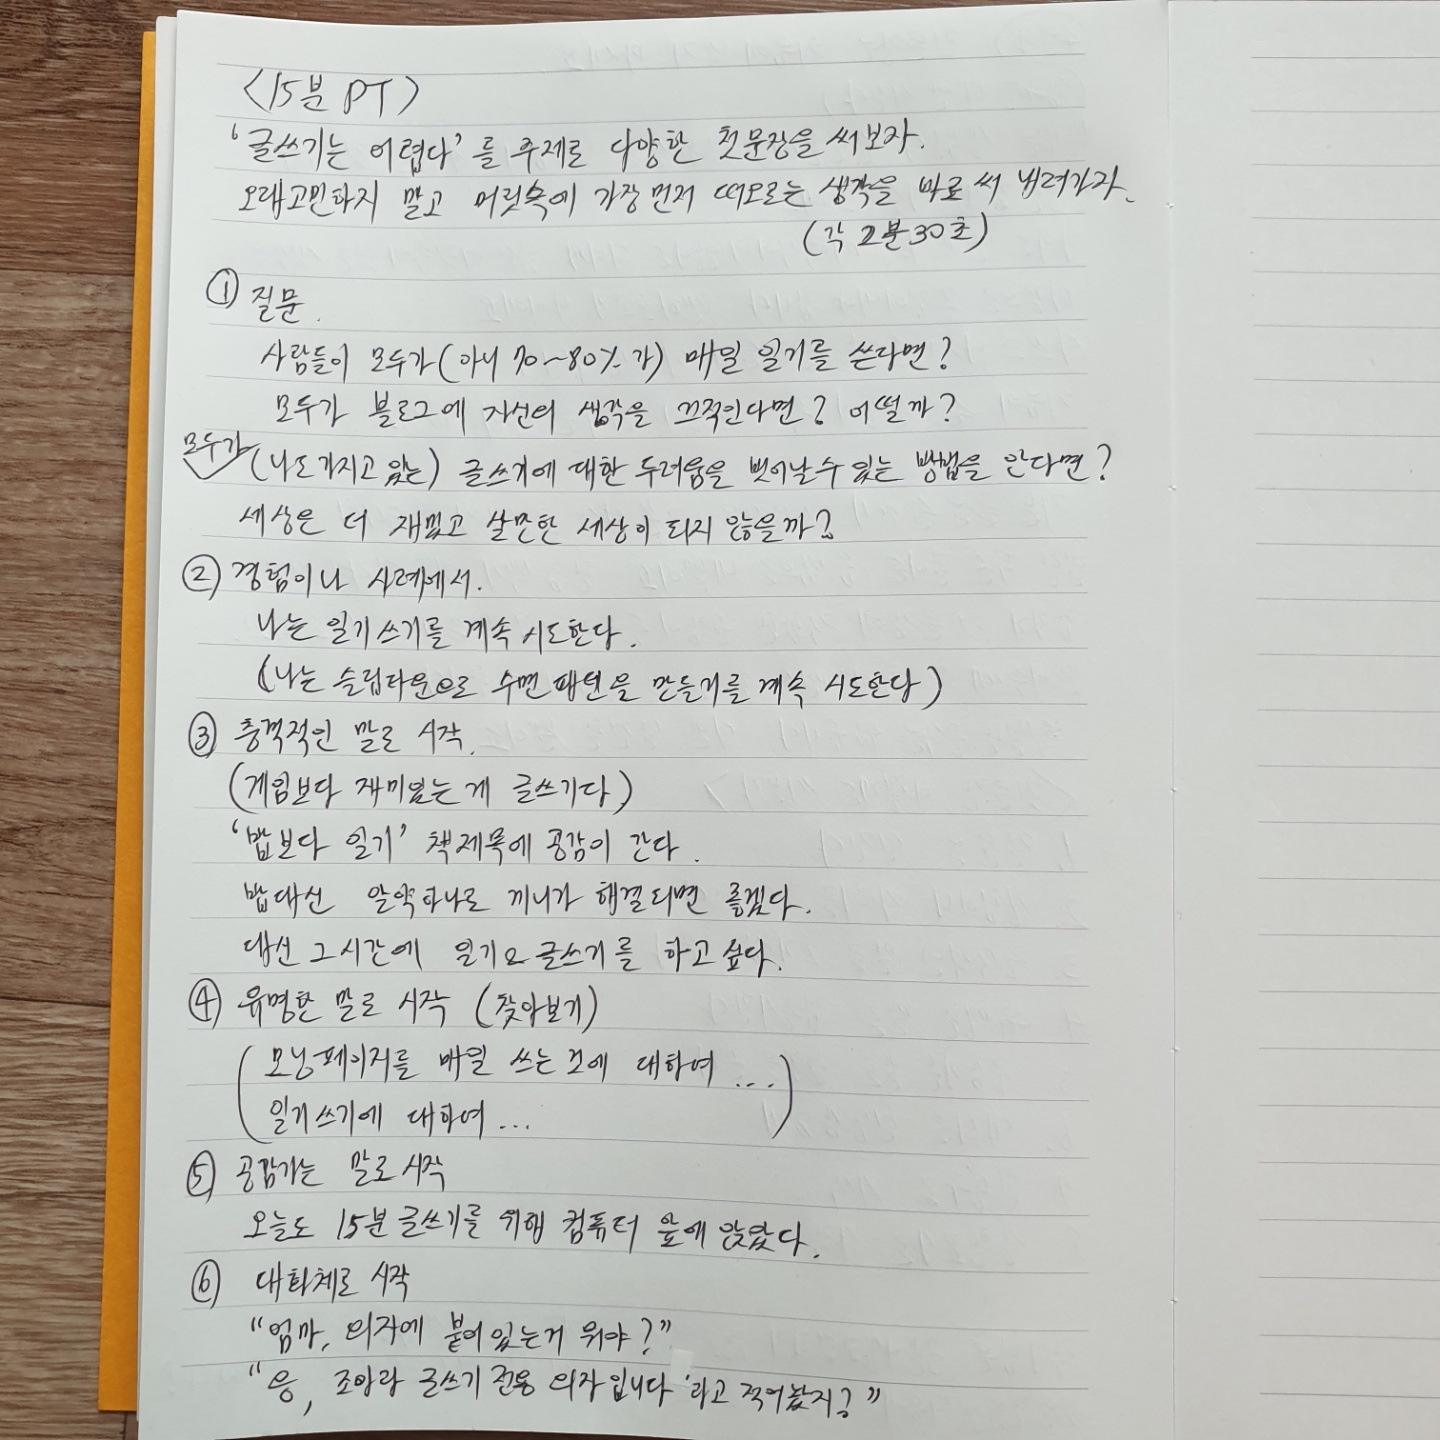 <15분 PT>
‘글쓰기는 어렵다’를 주제로 다양한 첫문장을 써보자.
오래고민하지 말고 머릿속에 가장먼저 떠오르는 생각을 바로 써 내려가자.
(각 2분30초)
① 질문.
사람들이 모두가(아니 70~80%가) 매일 일기를 쓴다면?
모두가 블로그에 자신의 생각을 끄적인다면? 어떨까?
모두가 (나도가지고 있는) 글쓰기에 대한 두려움을 벗어날수 있는 방법을 안다면?
세상은 더 재밌고 살만한 세상이 되지 않을까?
② 경험이나 사례에서.
나는 일기쓰기를 계속 시도한다.
(나는 슬립타운으로 수면패턴을 만들기를 계속 시도한다)
③ 충격적인 말로 시작.
(게임보다 재미있는게 글쓰기다)
‘밥보다 일기’ 책제목에 공감이 간다.
밥대신 알약하나로 끼니가 해결되면 좋겠다.
대신 그시간에 일기나 글쓰기를 하고싶다.
④ 유명한 말로 시작 (찾아보기)
(모닝페이지를 매일 쓰는 것에 대하여 ...
일기쓰기에 대하여 ...)
⑤ 공감가는 말로 시작
오늘도 15분 글쓰기를 위해 컴퓨터 앞에 앉았다.
⑥ 대화체로 시작
“엄마, 의자에 붙어있는거 뭐야?”
“응, 글쓰기 전용 의자입니다 ’라고 적어놨지?”